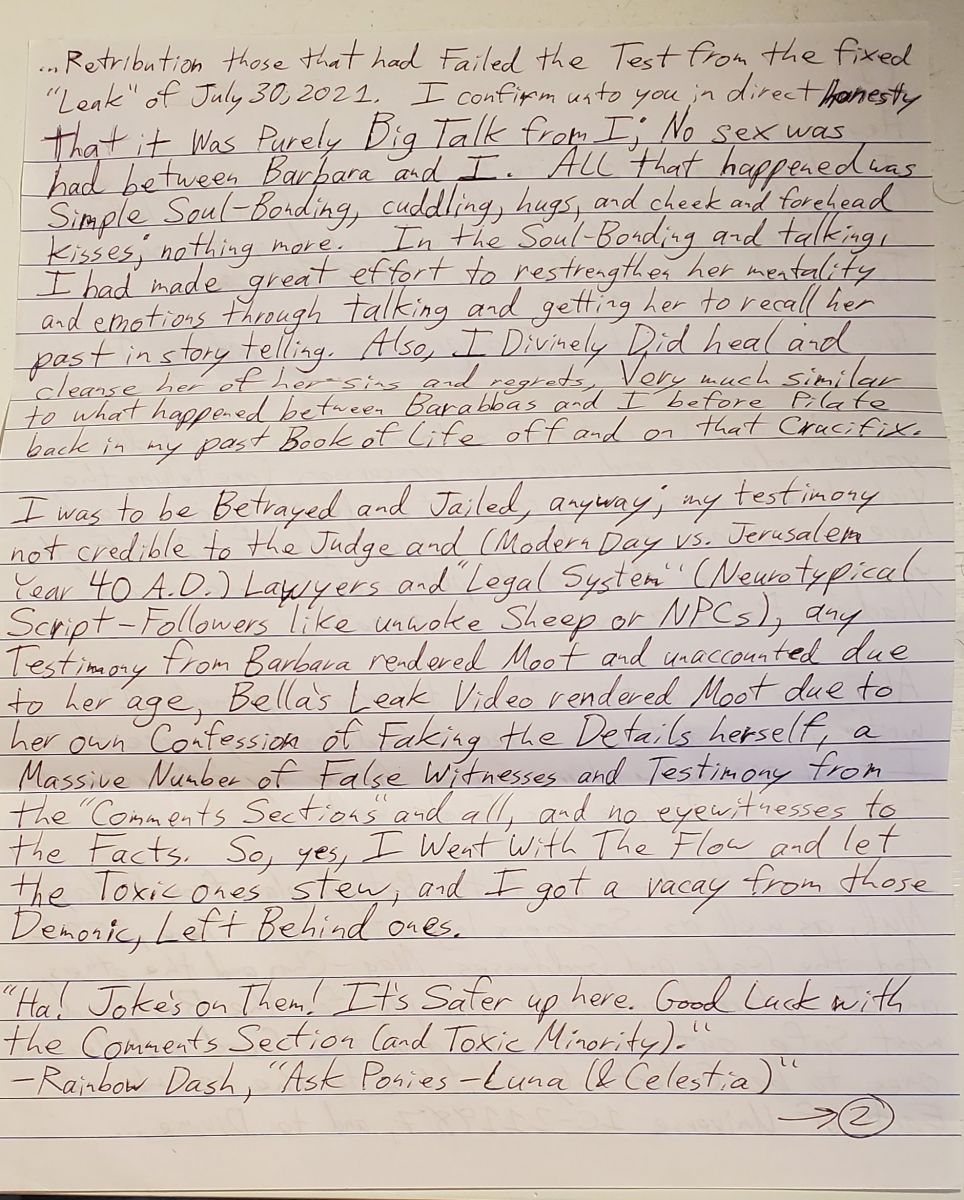 ... Retribution those that had Failed the Test from the fixed
"Leak" of July 30, 2021. I confirm unto you in direct honesty
that it Was Purely Big Talk from I; No sex was
had between Barbara and I. All that happened was
Simple Soul-Bonding, cuddling, hugs, and cheek and forehead
kisses; nothing more. In the Soul-Bonding and talking,
I had made great effort to restrengthen her mentality
and emotions through talking and getting her to recall her
past in story telling. Also, I Divinely Did heal and
cleanse her of her sins and regrets, Very much similar
to what happened between Barabbas and I before Pilate
back in my past Book of Life off and on that Crucifix.
I was to be Betrayed and Jailed, anyway; my testimony
not credible to the Judge and (Modern Day vs. Jerusalem
Year 40 A.D.) Lawyers and "Legal System" (Neurotypical
Script-Followers like unwoke Sheep or NPCs), any
Testimony from Barbara rendered Moot and unaccounted due
to her age, Bella's Leak Video rendered Moot due to
her own Confession of Faking the Details herself, a
Massive Number of False Witnesses and Testimony from
the "Comments Sections" and all, and no eyewitnesses to
the Facts. So, yes, I Went With The Flow and let
the Toxic ones stew, and I got a vacay from those
Demonic, Left Behind ones.
"Ha! Joke's on Them! It's Safer up here. Good Luck with
the Comments Section (and Toxic Minority)."
-Rainbow Dash, "Ask Ponies - Luna (& Celestia)"
→ 2